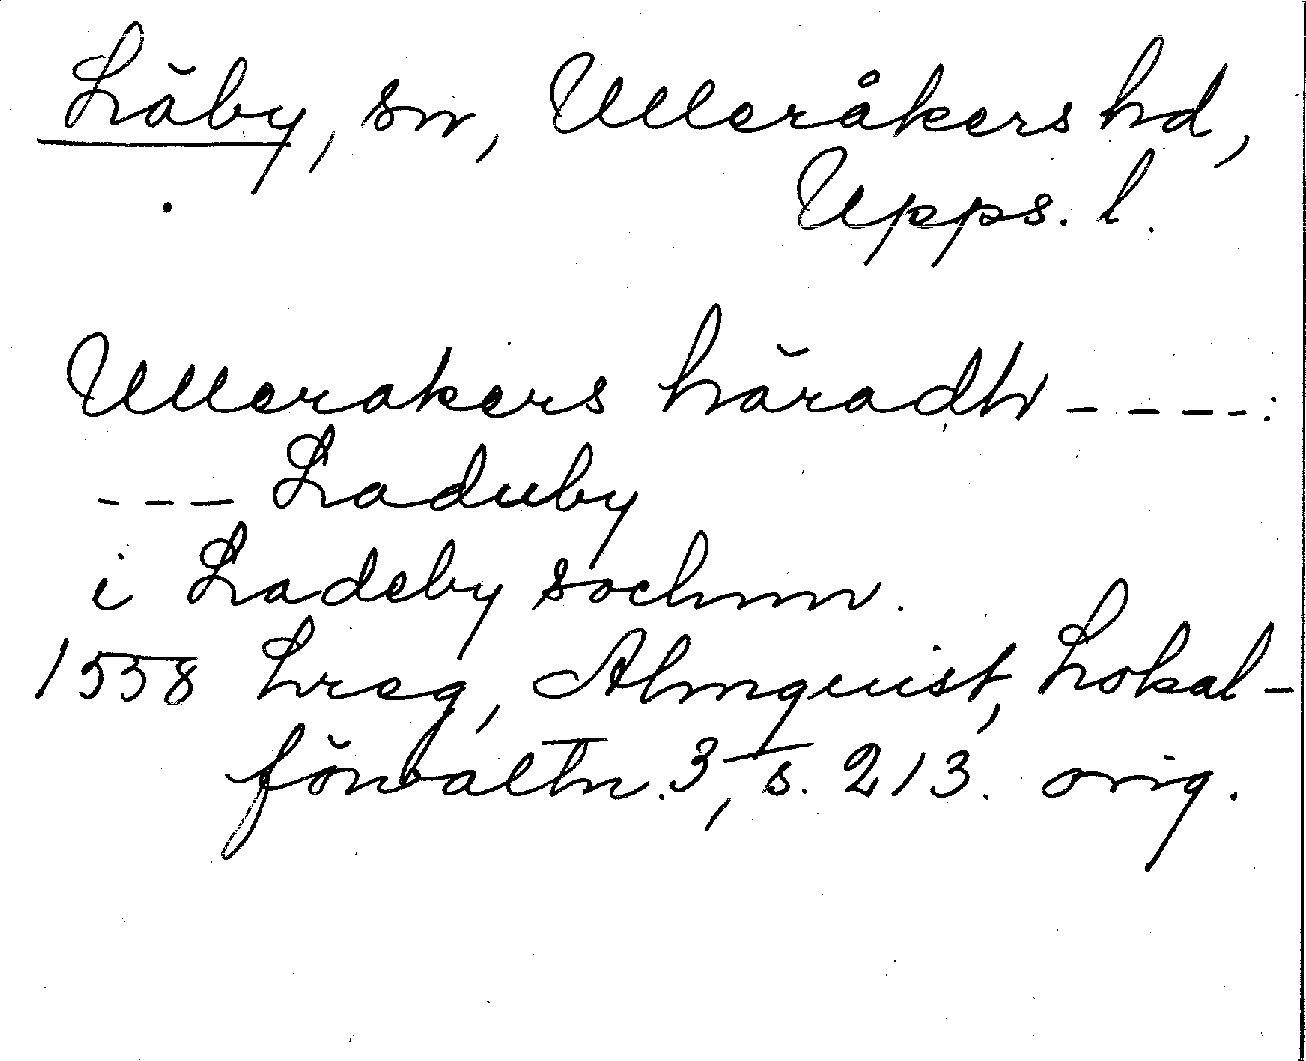 Läby, sn, Ulleråkers hd,
Upps. l.
Ullerakers häradh ----:
--- Laduby
i Ladeby sochnn.
1558 Lreg, Almquist, Lokal-
förvaltn. 3, s. 213. orig.